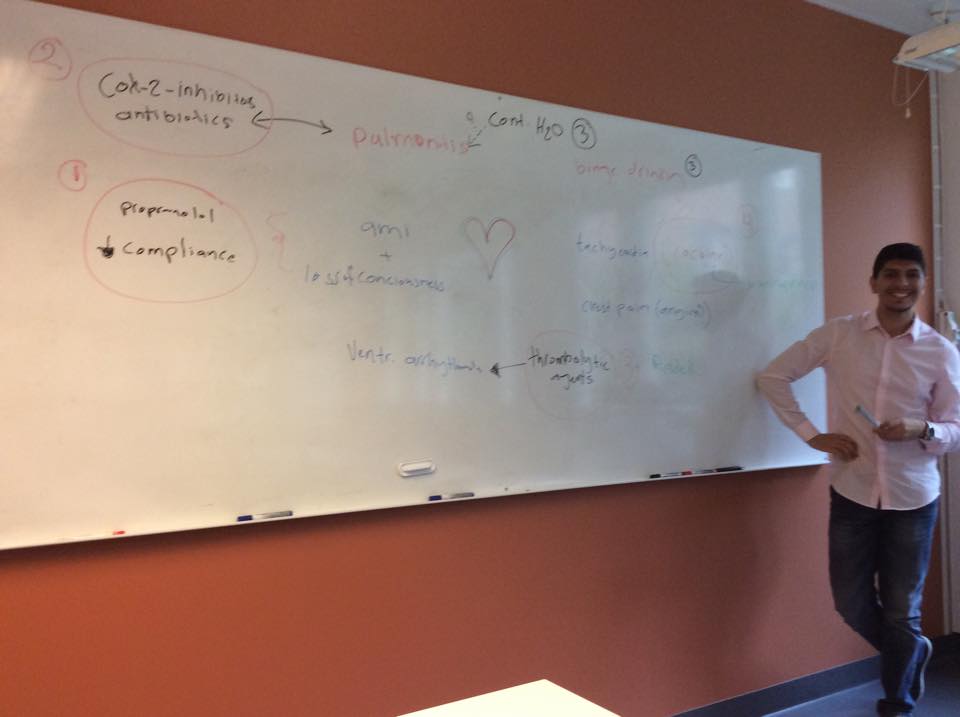 2
Cox-2-inhibitos
antibiotics
pulmonitis
Cont. H2O 3
binge drinkin 3
1
propranolol
↓ compliance
ami
+
loss of conciousness
tachycardia (cocaine)
4
chest pain (angina?)
Ventr. arrhythmia
thrombolytic
agents